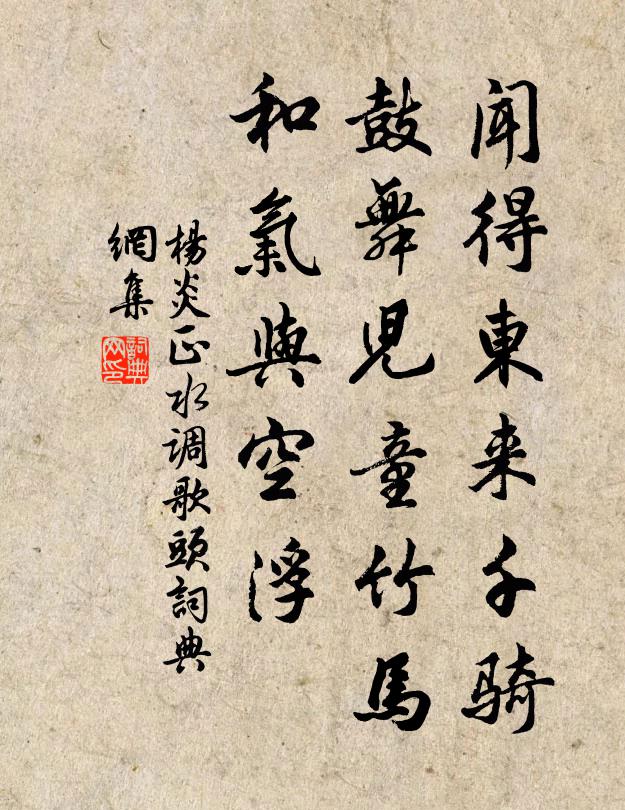 闻得東来千骑
鼓舞兒童竹馬
和氣與空浮
楊炎正水调歌頭詞典
網集
詞典网印